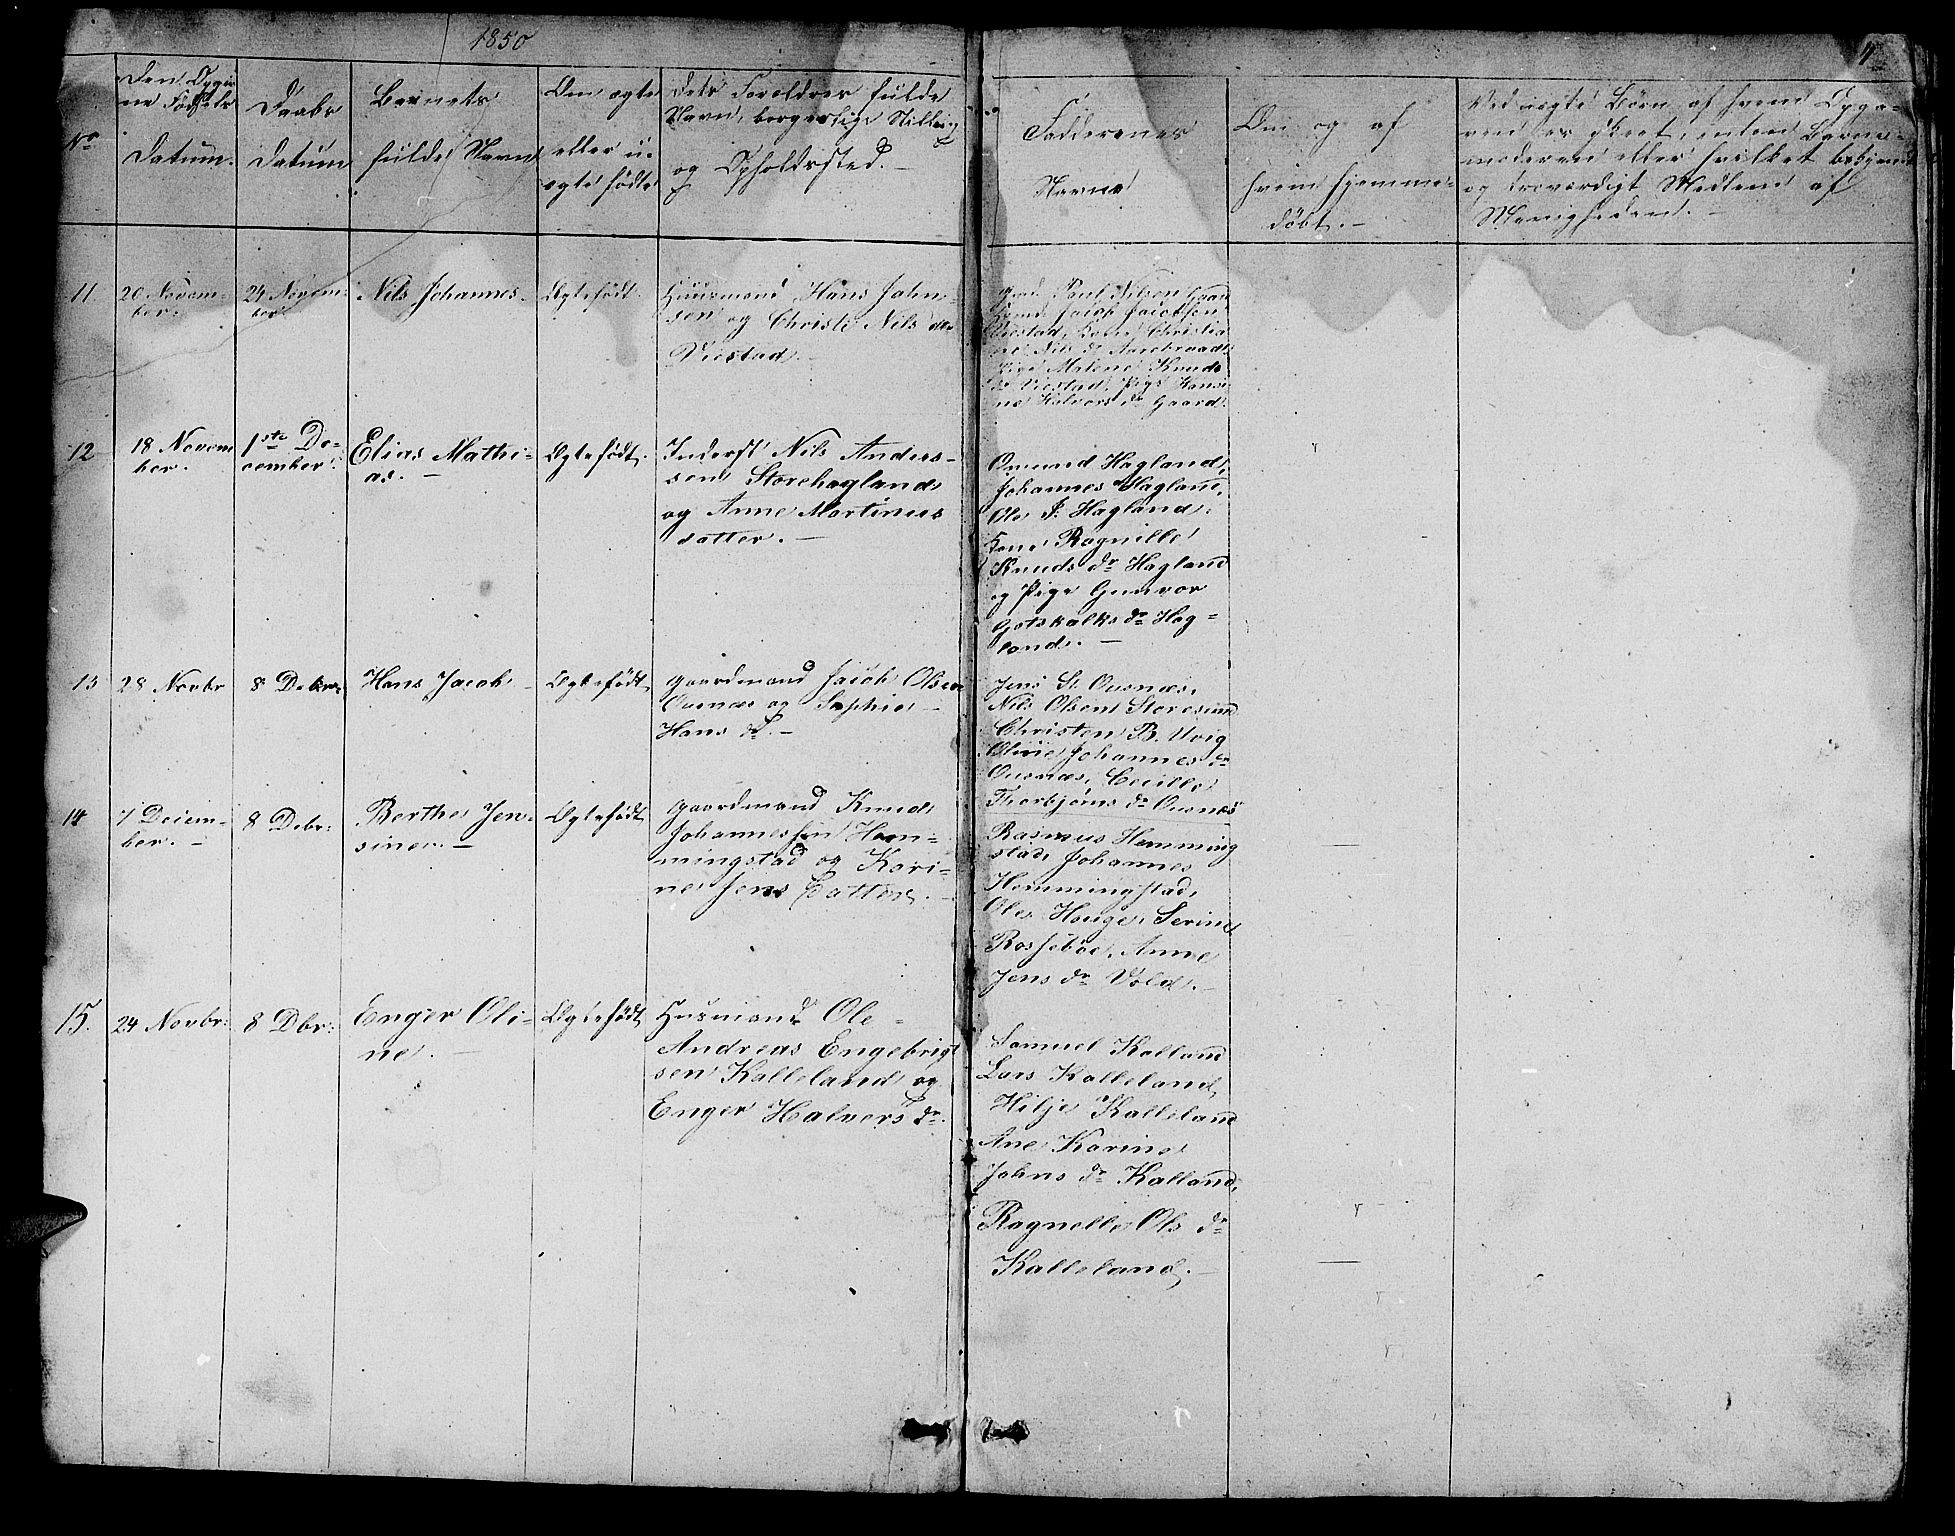 1850
4
Den Dygti-
ne Fødsels
Datum.
Daabs
Datum
Barnets
fulde Navn
Om ægte
eller u-
ægte fødte
Dets Forældres fulde
Navn, borgerlige Stilling
og Opholdssted.-
Faddernes
Navne
Om og af
hvem hjemme-
døbt.-
Ved uægte Børn af hvem
er skeet, enten Barne-
moderen eller hvilket bekjendt
og troværdigt Medlem af
Menigheden.-
No
11
20 Novem-
ber.
24 Novem-
ber.
Nils Johannes.
Ægtefødt.
Huusmand Hans John-
sen og Christi Nils dr
Viestad.-
Paul Nilsen
Jacob Jacobsen
Viestad, Kone Christia
ne Nils dr
Pige Malene Knuds
dr Viestad, Pige Hansi
ne Halvors dr Gaard.
12
18 Novem
ber.
1ste De-
cember.
Elias Mathi-
as.-
Ægtefødt.
Inderst Nils Anders-
sen Storehagland
og Anne Martinus
datter.-
Omund Hagland,
Johannes Hagland,
Ole J. Hagland,
Kone Ragnille
Knuds dr Hagland
og Pige Gunvor
Gotskalks dr Hag-
land.-
13
28 Novbr
8 Debr:
Hans Jacob
Ægtefødt
gaardmand Jacob Olsen
Ousnæs og Sophie
Hans dr.-
Jens St. Ousnæs,
Nils Olsen Storesund
Christen B. Uvig
Olivie Johannes dr
Ousnæs, Cecille
Thorbjørns dr Ousnæs
14
7 Decem-
ber.-
8 Debr:
Berthe Jen-
sine.-
Ægtefødt
gaardmand Knud
Johannessen Hem-
mingstad og Kari-
ne Jens Datter.-
Rasmus Hemming
stad, Johannes
Hemmingstad,
Ole Houge, Serine
Rossebøe, Anne
Jens dr Vold.-
15.
24 Novbr:
8 Dbr:
Enger Oli-
ne.-
Ægtefødt
Husmand Ole
Andreas Engebrigt
sen Kalleland og
Enger Halvors dr.
Samuel Kalland
Lars Kalleland,
Hilje Kalleland
Ane Karine
Johns dr Kalland,
Ragnelle Ols dr
Kalleland.-